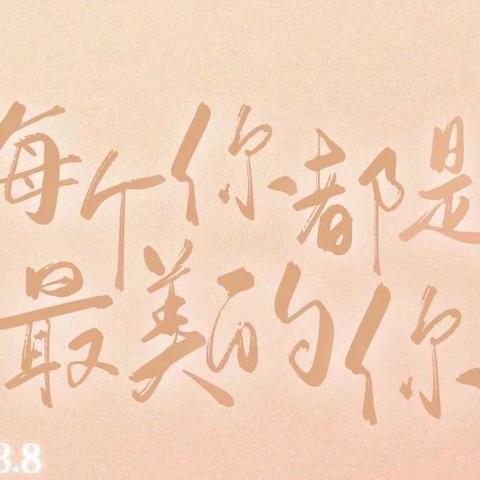 每个你都是
最美的你
3.8